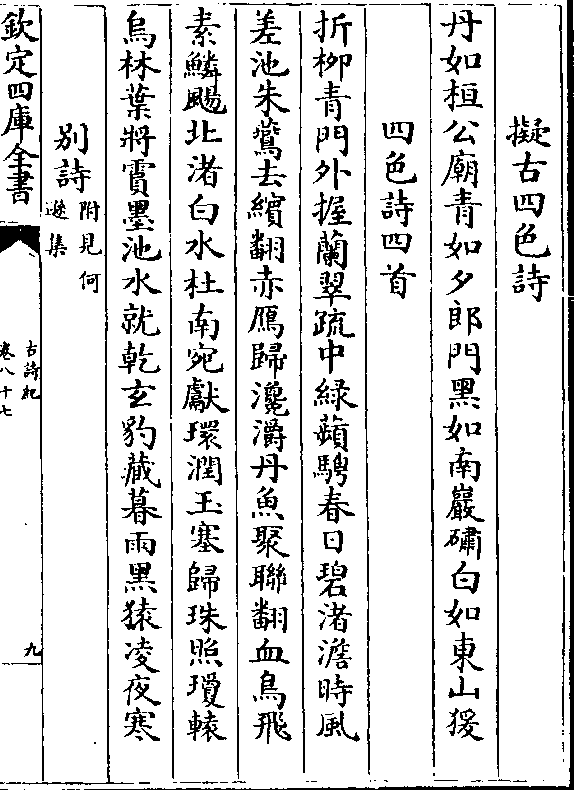 擬古四色詩
丹如桓公廟青如夕郎門黑如南巖礵白如東山猨
四色詩四首
折柳青門外握蘭翠疏中緑蘋騁春日碧渚澹時風
差池朱鷰去繽翻赤鴈歸瀺灂丹魚聚聯翻血鳥飛
素鱗颺北渚白水杜南宛獻環潤玉塞歸珠照瓊轅
烏林葉將霣墨池水就乾玄豹藏暮雨黑猿凌夜寒
别詩附見何遜集
欽定四庫全書
古詩紀
卷八十七
九